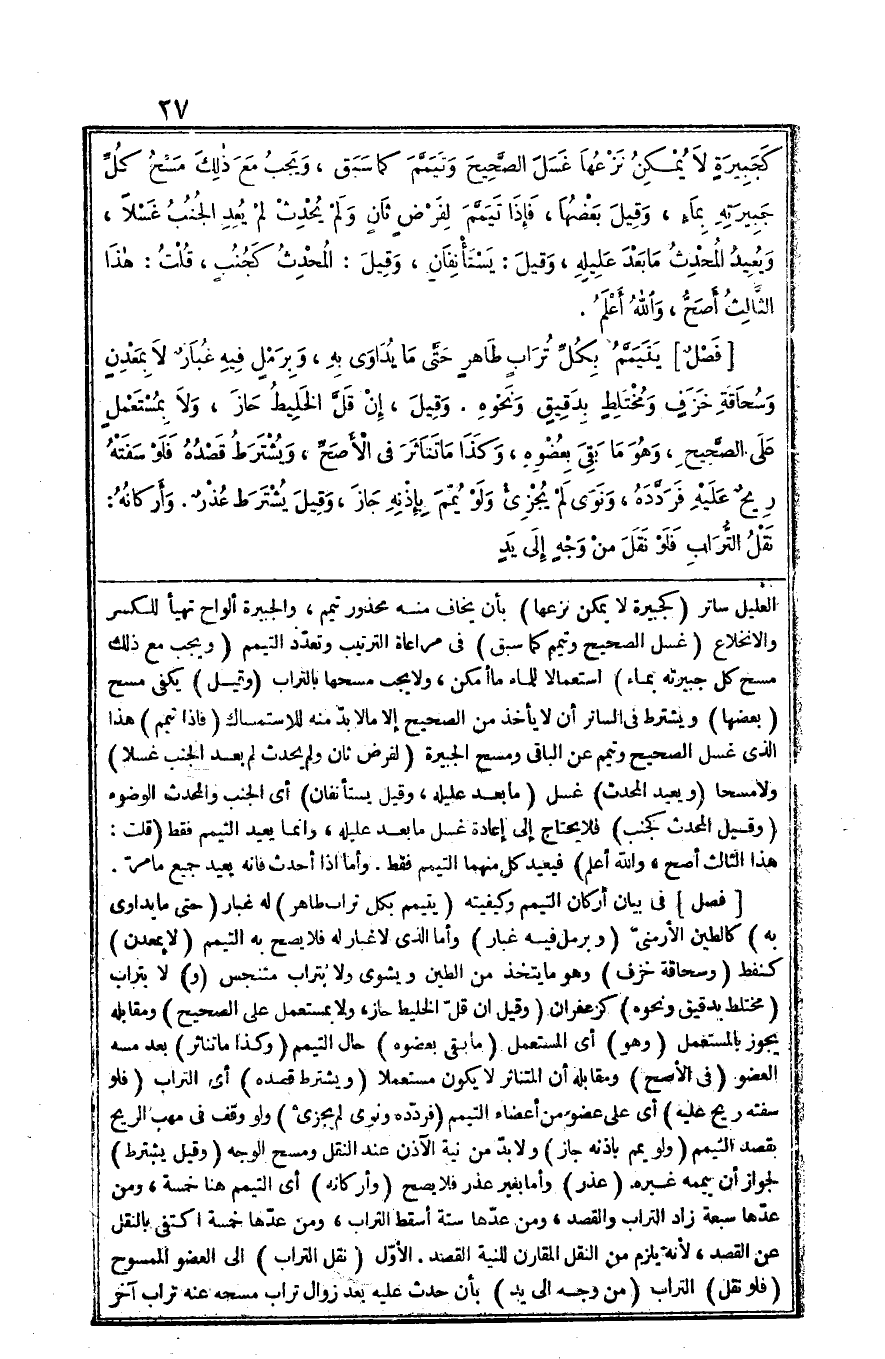 ٢٧
كَجَبِيرَةٍ لاَ يُمْكِنُ نَزْعُهَا غَسَلَ الصَّحِيحَ وَتَيَمَّمَ كَمَا سَبَق ، وَيَجِبُ مَعَ ذٰلِكَ مَسْحُ كُلِّ
جَبِيرَتِهِ بِمَاءٍ ، وَقِيلَ بَعْضُهَا ، فَإِذَا تَيَمَّمَ لِفَرْضٍ ثَانٍ وَلَمْ يُحْدِثْ لَمْ يُعِدِ الجُنُبُ غَسْلاً ،
وَيُعِيدُ الْمُحْدِثُ مَا بَعْدَ عَلِيلِهِ ، وَقيلَ : يَسْتَأْنِفَانِ ، وَقِيلَ : الْمُحْدِثُ كَجُنُبٍ ، قُلْتُ : هٰذَا
الثَّالِثُ أَصَحُّ ، وَاللهُ أَعْلَمُ .
[ فَصْلٌ ] يَتَيَمَّمُ بِكُلِّ تُرَابٍ طَاهِرٍ حَتَّى مَا يُدَاوَى بِهِ ، وَبِرَمْلٍ فِيهِ غُبَارٌ لاَ بِمَعْدِنٍ
وَسُحَاقَةِ خَزَفٍ وَمُخْتَلِطٍ بِدَقِيقٍ وَنَحْوِهِ . وَقِيلَ ، إِنْ قَلَّ الخَلِيطُ جَازَ ، وَلاَ بِمُسْتَعْمَلٍ
عَلَى الصَّحِيحِ ، وَهُوَ مَا بَقِيَ بِعُضْوِهِ ، وَكَذَا مَا تَنَاثَرَ فِى الْأَصَحِّ ، وَيُشْتَرَطُ قَصْدُهُ فَلَوْ سَفَتْهُ
رِيحٌ عَلَيْهِ فَرَدَّدَهُ ، وَنَوَى لَمْ يُجْزِئْ وَلَوْ يُمِّمَ بِإِذْنِهِ جَازَ ، وَقِيلَ يُشْتَرَطُ عُذْرٌ . وَأَرْكَانُهُ :
نَقْلُ التُّرَابِ فَلَوْ نَقَلَ مِنْ وَجْهٍ إِلَى يَدٍ
العليل ساتر ( كجبيرة لا يمكن نزعها ) بأن يخاف منه محذور تيمم ، والجبيرة ألواح تهيأ للكسر
والانخلاع ( غسل الصحيح وتيمم كما سبق ) فى مراعاة الترتيب وتعدّد التيمم ( ويجب مع ذلك
مسح كل جبيرته بماء ) استعمالا للماء ما أمكن ، ولا يجب مسحها بالتراب ( وقيل ) يكفى مسح
( بعضها ) ويشترط فى الساتر أن لا يأخذ من الصحيح إلا مالا بدّ منه للاستمساك ( فاذا تيمم ) هذا
الذى غسل الصحيح وتيمم عن الباقى ومسح الجبيرة ( لفرض ثان ولم يحدث لم يعد الجنب غسلا )
ولا مسحا ( و يعيد المحدث ) غسل ( ما بعد عليله ، وقيل يستأنفان ) أى الجنب والمحدث الوضوء
( وقيل المحدث كجنب ) فلا يحتاج إلى إعادة غسل ما بعد عليله ، وانما يعيد التيمم فقط ( قلت :
هذا الثالث أصح ، والله أعلم ) فيعيد كل منهما التيمم فقط . وأما اذا أحدث فانه يعيد جميع ما مرّ .
[ فصل ] فى بيان أركان التيمم وكيفيته ( يتيمم بكل تراب طاهر ) له غبار ( حتى ما يداوى
به ) كالطين الأرمنىّ ( و برمل فيه غبار ) وأما الذى لا غبار له فلا يصح به التيمم ( لا بمعدن )
كنفط ( وسحاقة خزف ) وهو ما يتخذ من الطين و يشوى ولا بتراب متنجس ( و ) لا بتراب
( مختلط بدقيق ونحوه ) كزعفران ( وقيل ان قلّ الخليط جاز ، ولا بمستعمل على الصحيح ) ومقابله
يجوز بالمستعمل ( وهو ) أى المستعمل ( ما بقى بعضوه ) حال التيمم ( وكذا ما تناثر ) بعد مسه
العضو ( فى الأصح ) ومقابله أن المتناثر لا يكون مستعملا ( ويشترط قصده ) أى التراب ( فلو
سفته ريح عليه ) أى على عضو من أعضاء التيمم ( فردّده ونوى لم يجزئ ) ولو وقف فى مهب الريح
بقصد التيمم ( ولو يمم باذنه جاز ) ولا بدّ من نية الآذن عند النقل ومسح الوجه ( وقيل يشترط )
لجواز أن ييممه غيره ( عذر ) وأما بغير عذر فلا يصح ( وأركانه ) أى التيمم هنا خمسة ، ومن
عدّها سبعة زاد التراب والقصد ، ومن عدّها ستة أسقط التراب ، ومن عدّها خمسة اكتفى بالنقل
عن القصد ، لأنه يلزم من النقل المقارن للنية القصد . الأوّل ( نقل التراب ) الى العضو الممسوح
( فلو نقل ) التراب ( من وجه الى يد ) بأن حدث عليه بعد زوال تراب مسحه عنه تراب آخر